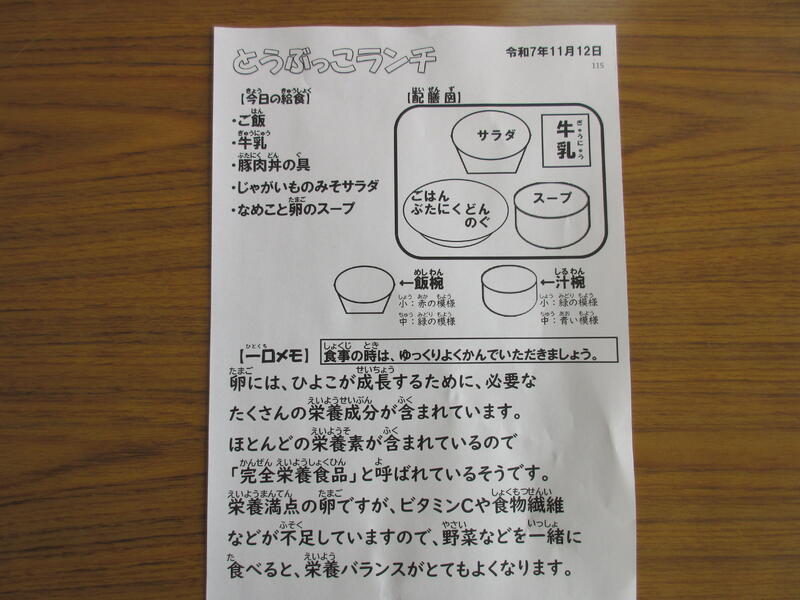 とうぶっこランチ
令和7年11月12日
115
【今日の給食】
・ご飯
・牛乳
・豚肉丼の具
・じゃがいものみそサラダ
・なめこと卵のスープ
【配膳図】
サラダ
牛乳
ごはん
ぶたにくどん
のぐ
スープ
←飯椀
小：赤の模様
中：緑の模様
←汁椀
小：緑の模様
中：青い模様
【一口メモ】
食事の時は、ゆっくりよくかんでいただきましょう。
卵には、ひよこが成長するために、必要な
たくさんの栄養成分が含まれています。
ほとんどの栄養素が含まれているので
「完全栄養食品」と呼ばれているそうです。
栄養満点の卵ですが、ビタミンCや食物繊維
などが不足していますので、野菜などを一緒に
食べると、栄養バランスがとてもよくなります。